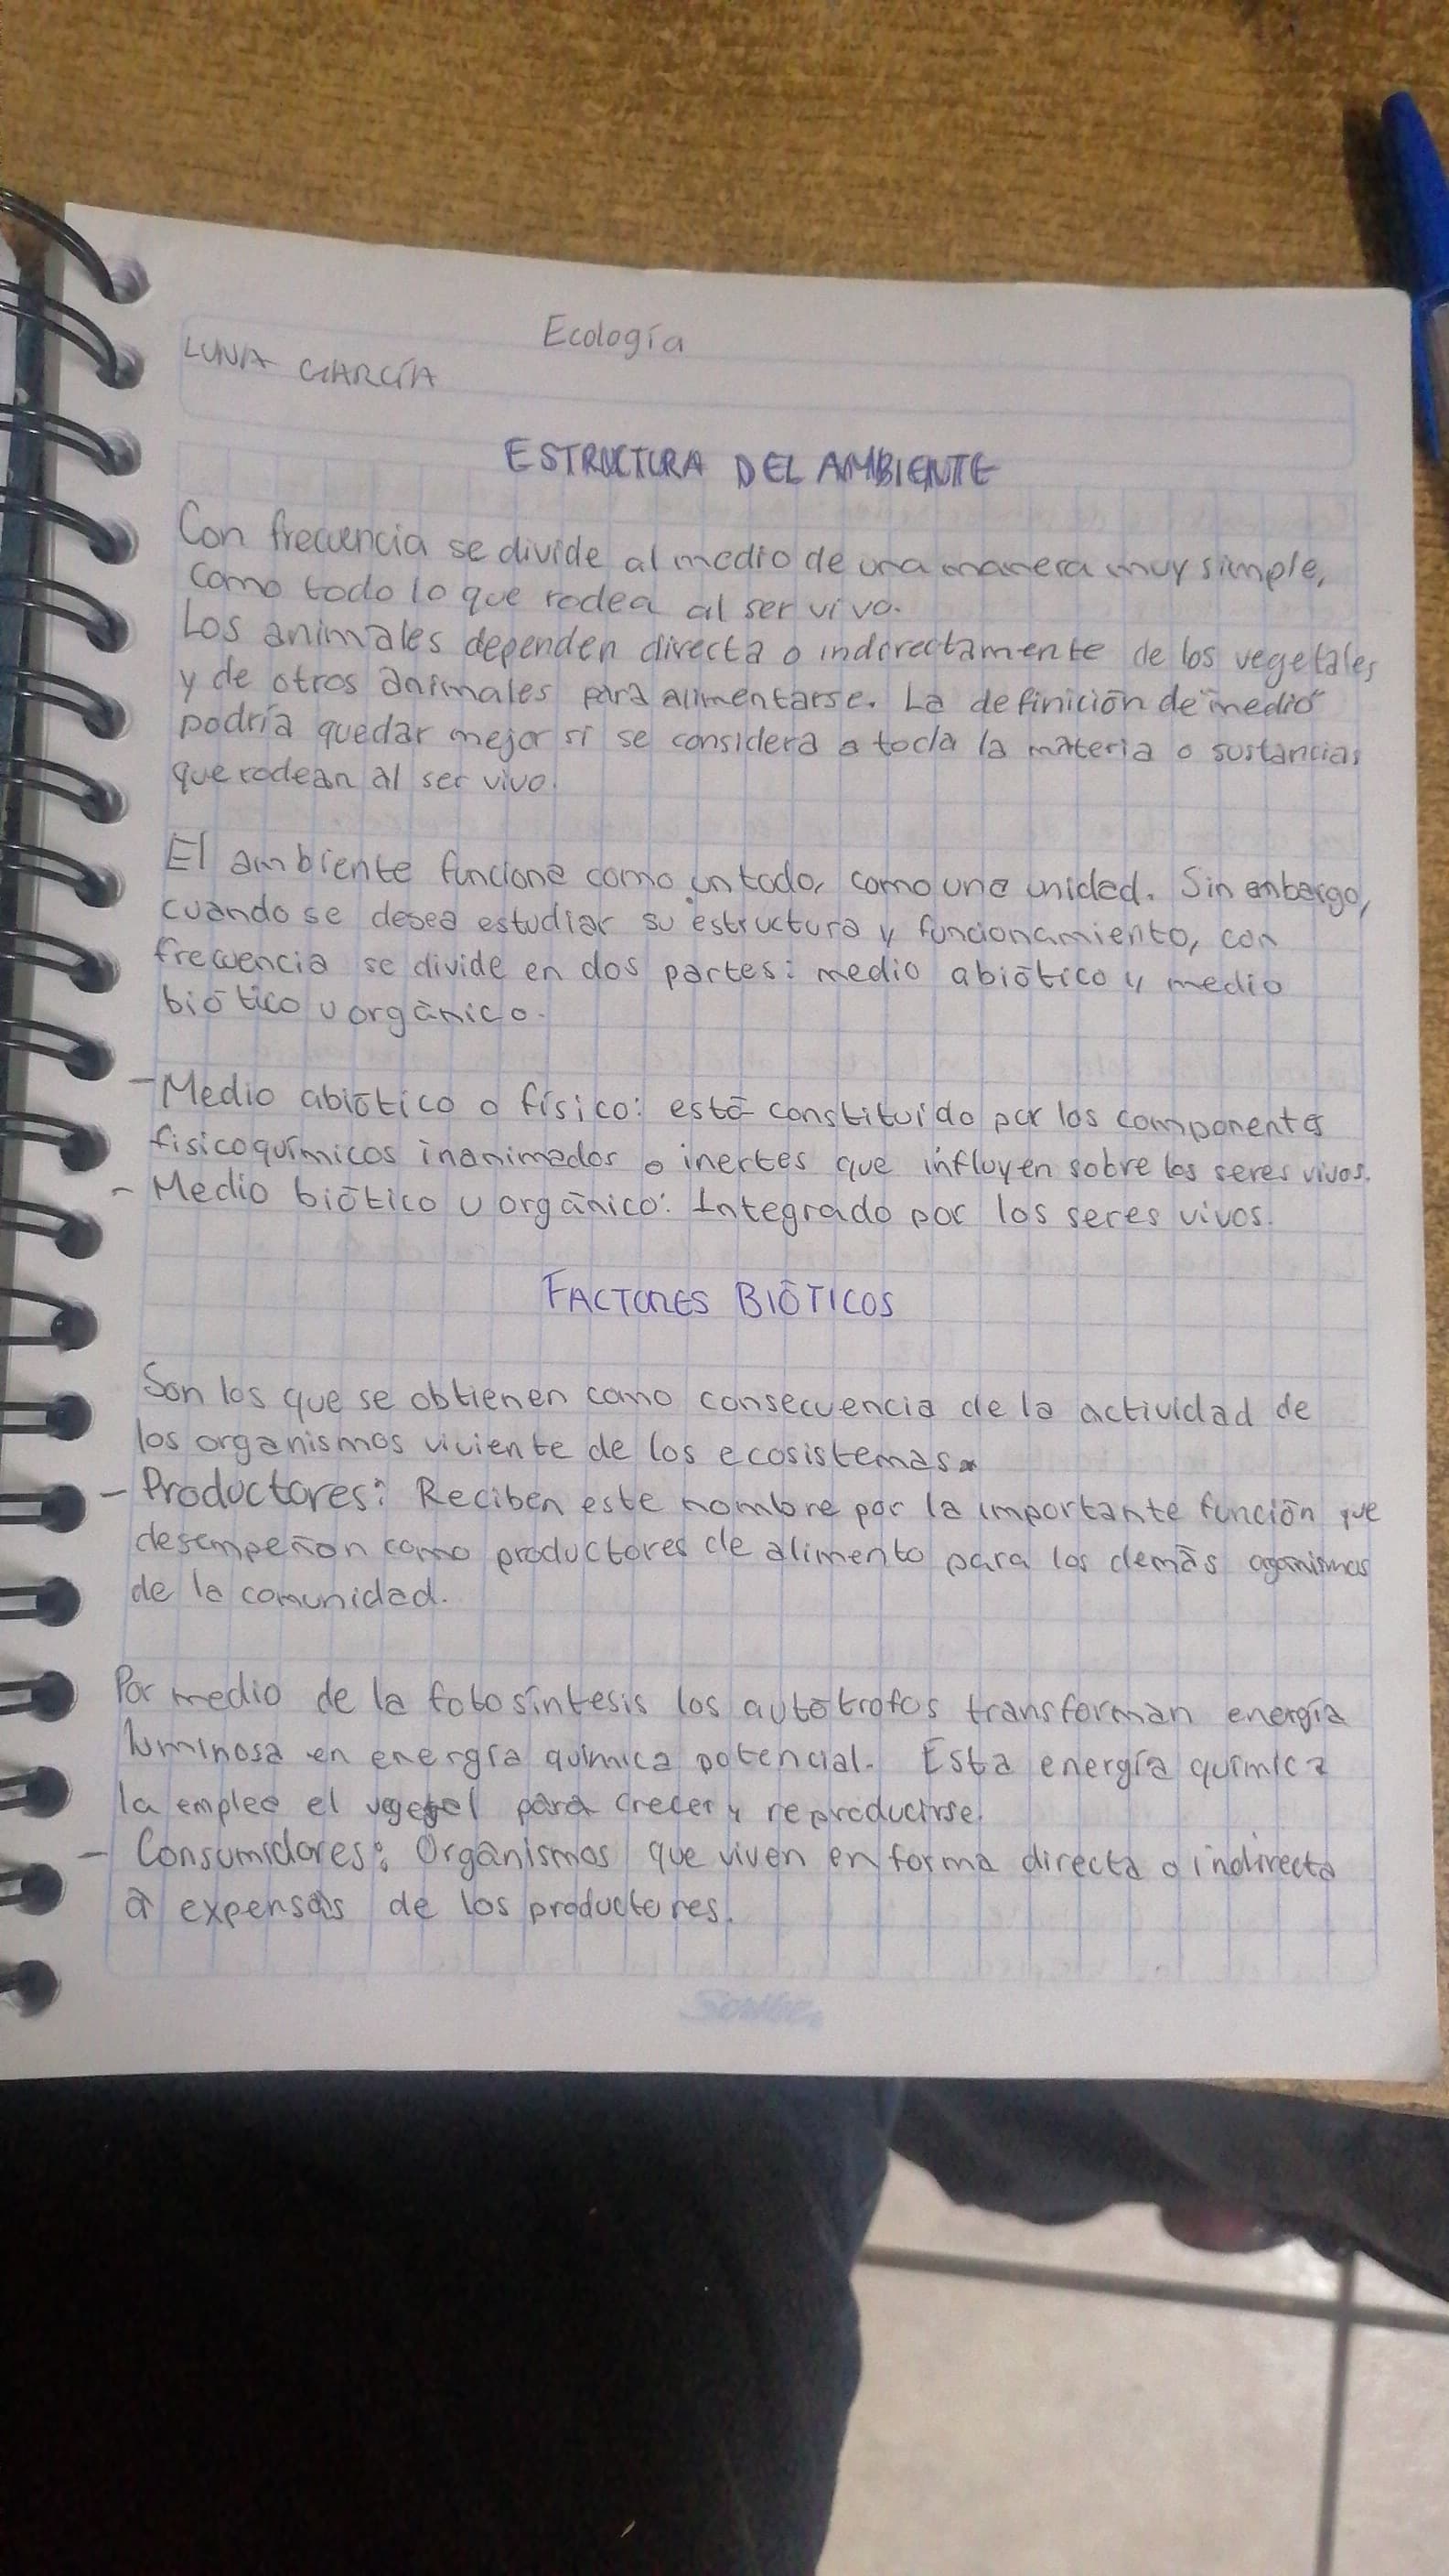 Ecología
LUNA GARCÍA
ESTRUCTURA DEL AMBIENTE
Con frecuencia se divide al medio de una manera muy simple,
como todo lo que rodea al ser vivo.
Los animales dependen directa o indirectamente de los vegetales
y de otros animales para alimentarse. La definición de "medio"
podría quedar mejor si se considera a toda la materia o sustancias
que rodean al ser vivo.
El ambiente funciona como un todo, como una unidad. Sin embargo,
cuando se desea estudiar su estructura y funcionamiento, con
frecuencia se divide en dos partes: medio abiótico y medio
biótico u orgánico.
- Medio abiótico o físico: está constituído por los componentes
fisicoquímicos inanimados o inertes que influyen sobre los seres vivos.
- Medio biótico u orgánico: Integrado por los seres vivos.
FACTORES BIÓTICOS
Son los que se obtienen como consecuencia de la actividad de
los organismos viviente de los ecosistemas.
- Productores: Reciben este nombre por la importante función que
desempeñan como productores de alimento para los demás oganismos
de la comunidad.
Por medio de la fotosíntesis los autótrofos transforman energía
luminosa en energía química potencial. Esta energía química
la emplea el vegetal para crecer y reproducirse.
- Consumidores: Organismos que viven en forma directa o indirecta
a expensas de los productores.
Scribe